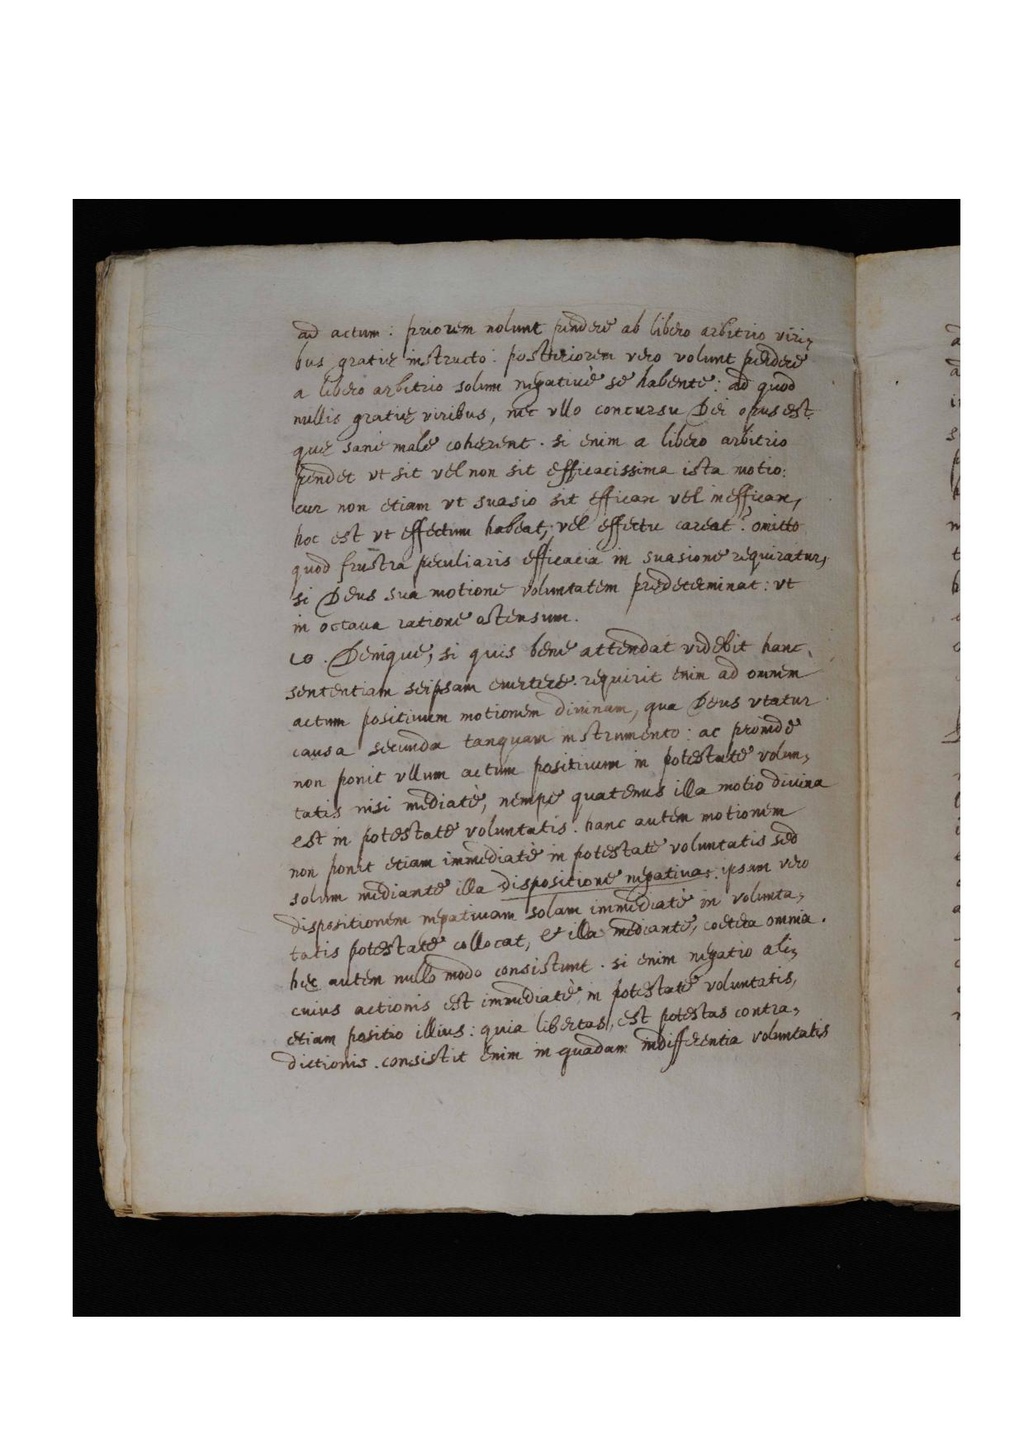 ad actum: priorem nolunt pendere ab libero arbitrio viri,
bus gratię instructo: posteriorem vero volunt pendere
a libero arbitrio solum negativè se habente: ad quod
nullis gratię viribus, nec vllo concursu Dei opus est.
quę sane male cohęrent. si enim a libero arbitrio
pendet vt sit vel non sit efficacissima ista motio:
cur non etiam vt suasio sit efficax vel inefficax,
hoc est vt effectum habeat, vel effectu careat? omitto
quod frustra peculiaris efficacia in suasione requiratur,
si Deus sua motione voluntatem prędeterminat: vt
in octaua ratione ostensum.
10. Denique, si quis bene attendat videbit hanc
sententiam seipsam euertere. requirit enim ad omnem
actum positiuum motionem diuinam, qua Deus vtatur
causa secunda tanquam instrumento: ac proinde
non ponit vllum actum positiuum in potestate volun,
tatis nisi mediatè, nempe quatenus illa motio diuina
est in potestate voluntatis. hanc autem motionem
non ponit etiam immediatè in potestate voluntatis sed
solum mediante illa dispositione negatiua: ipsam vero
dispositionem negatiuam solam immediatè in volunta,
tatis potestate collocat, & illa mediante, cœtera omnia.
hęc autem nullo modo consistunt. si enim negatio ali,
cuius actionis est immediatè in potestate voluntatis,
etiam positio illius: quia libertas, est potestas contra,
dictionis. consistit enim in quadam indifferentia voluntatis